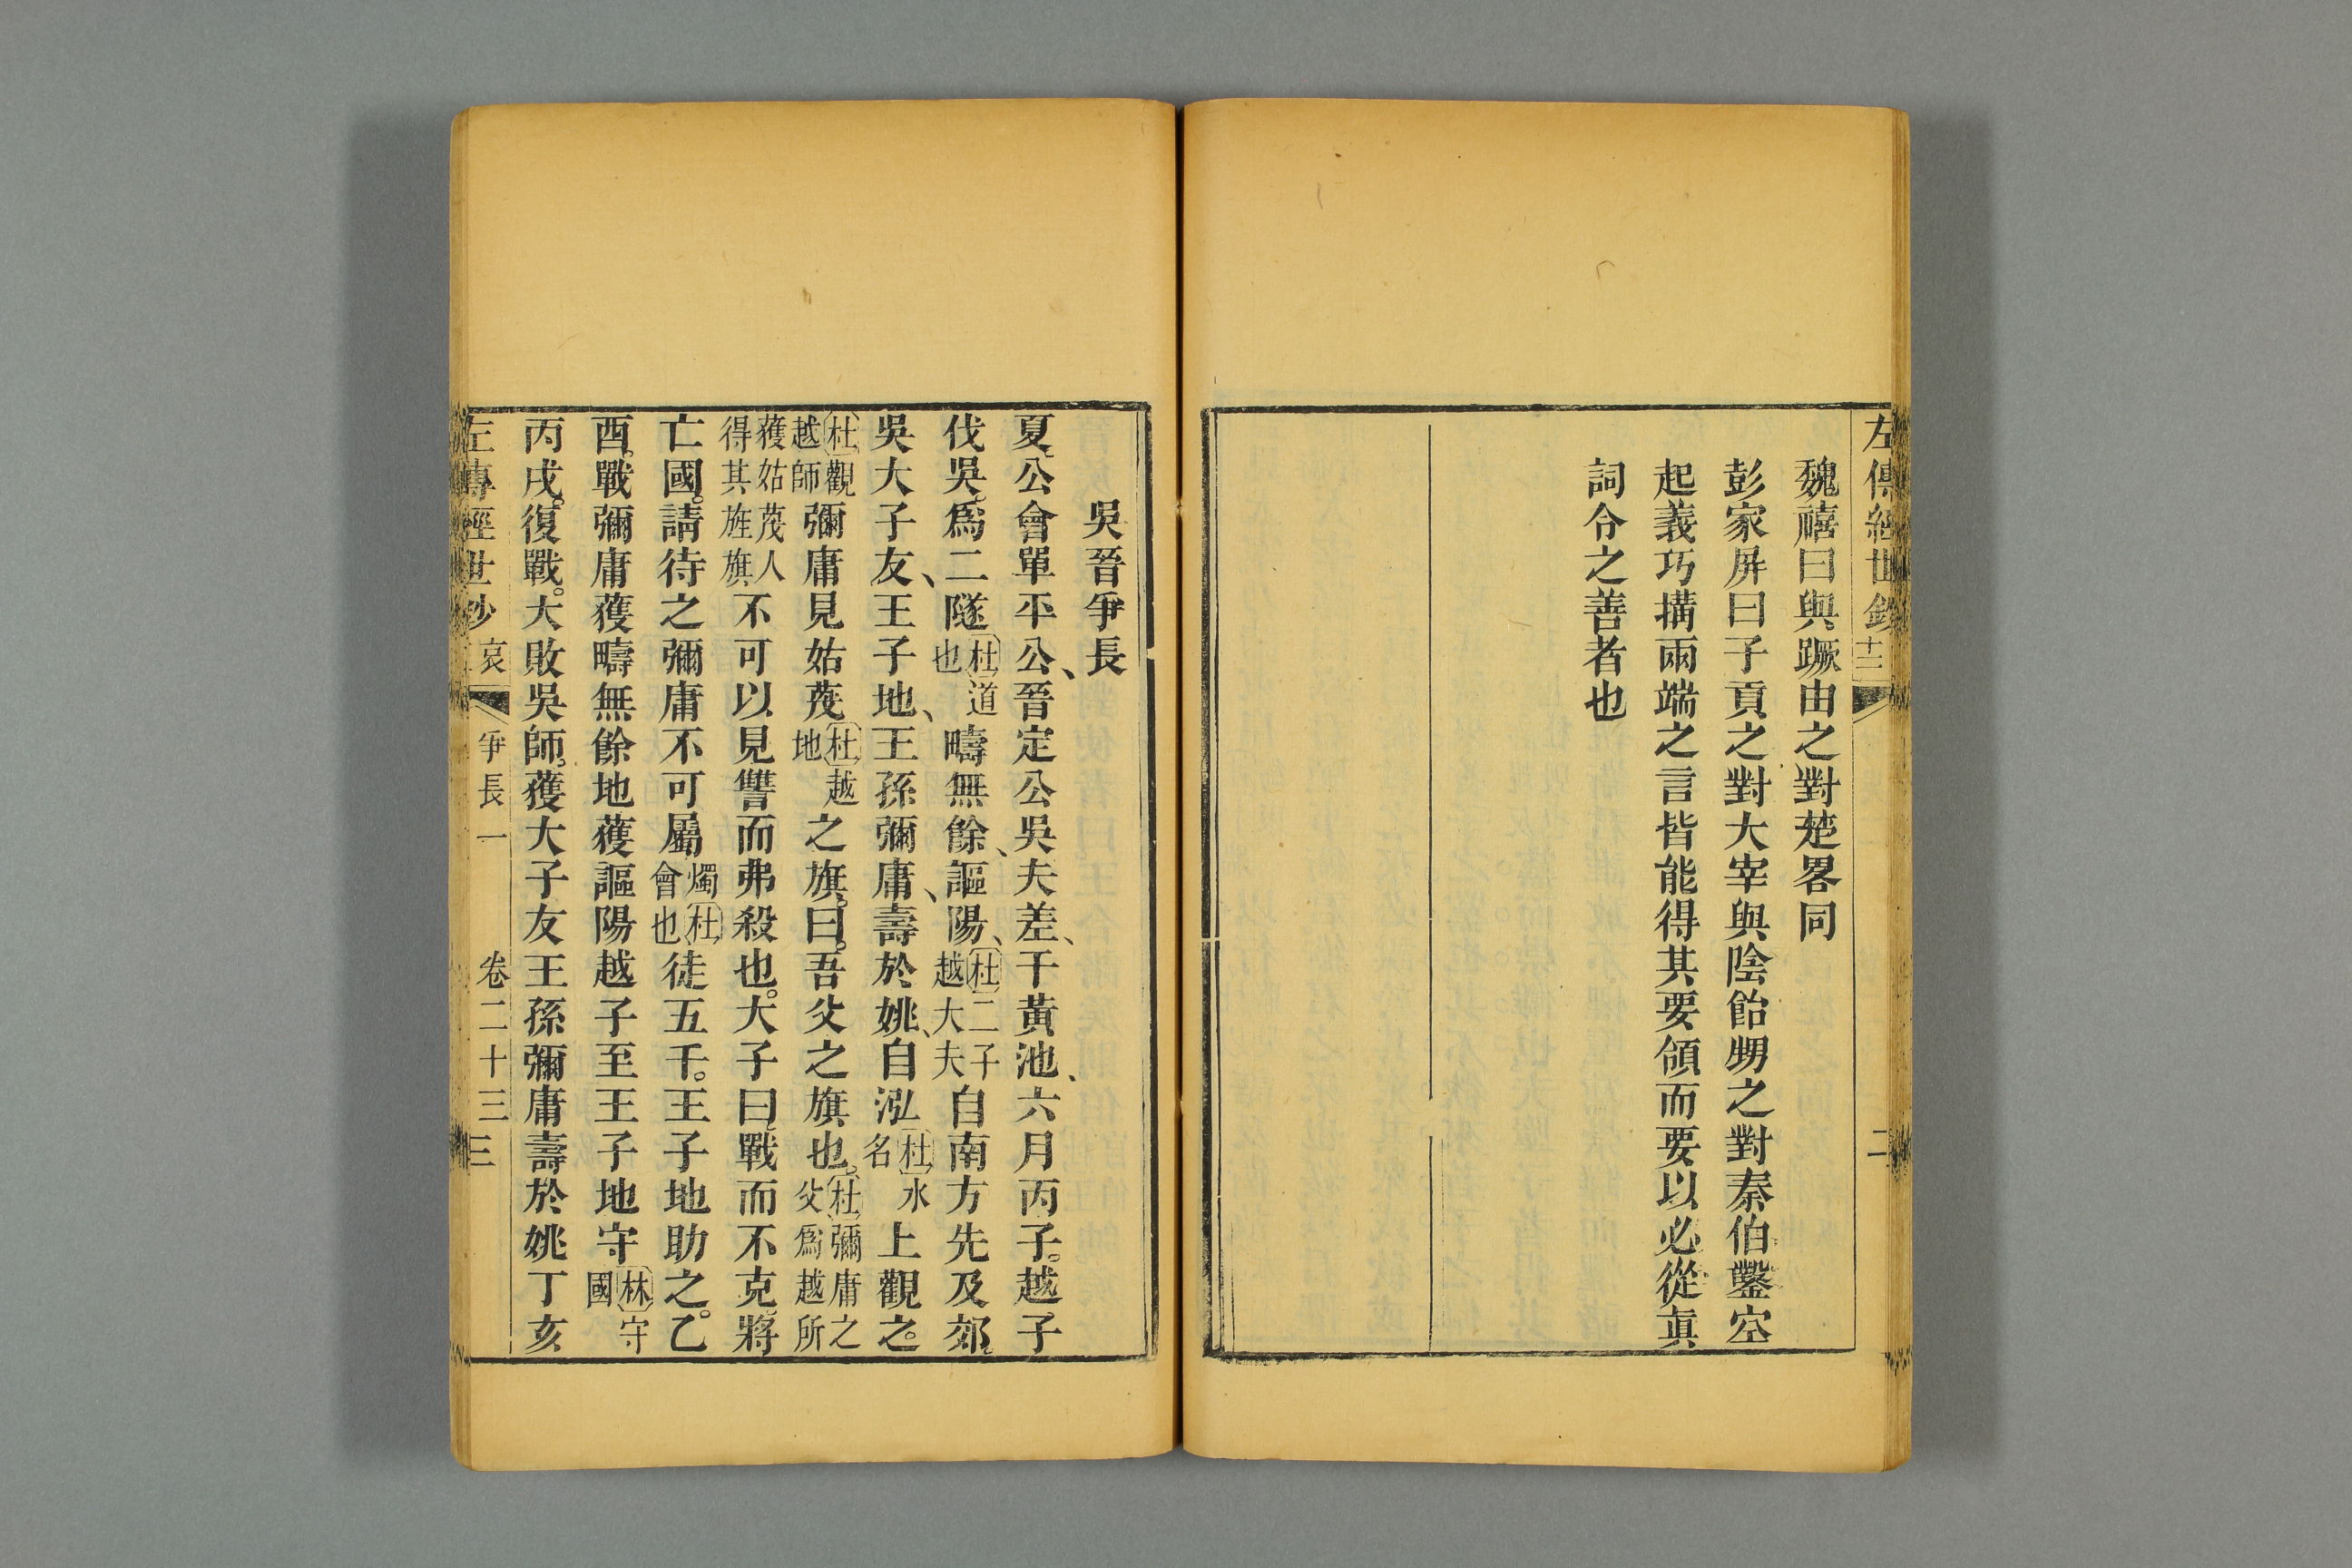 左傳經世鈔 十三 二
魏禧曰與蹶由之對楚畧同
彭家屏曰子貢之對大宰與陰飴甥之對秦伯鑿空
起義巧搆兩端之言皆能得其要領而要以必從眞
詞令之善者也
吳晉爭長
夏公會單平公、晉定公吳夫差、于黃池、六月丙子。越子
伐吳。爲二隧杜道也疇無餘、謳陽、杜二子越大夫自南方先及郊。
吳大子友、王子地、王孫彌庸、壽於姚、自泓杜水名上觀之。
杜觀越師彌庸見姑蔑杜越地之旗。曰。吾父之旗也。杜彌庸之父爲越所
獲姑蔑人得其旌旗不可以見讐而弗殺也。大子曰戰而不克。將
亡國。請待之彌庸不可屬燭杜會也徒五千。王子地助之。乙
酉。戰彌庸獲疇無餘地獲謳陽越子至王子地守林守國
丙戌。復戰。大敗吳師。獲大子友王孫彌庸壽於姚丁亥
左傳經世鈔 哀 爭長 一 卷二十三 三